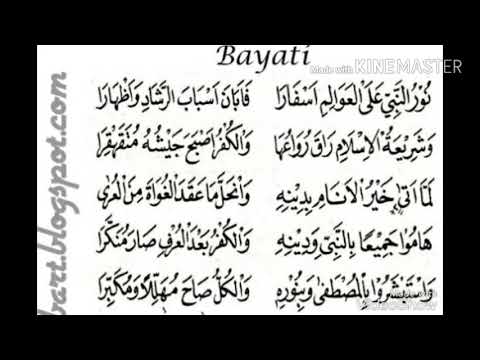 Bayati
Made with KINEMASTER
نُوْرُ النَّبِيِّ عَلَى الْعَوَالِمِ اَسْفَارَا فَاَبَانَ اَسْبَابَ الرَّشَادِ وَاَظْهَارَا
وَشَرِيْعَةُ الْاِسْلَامِ رَاقَ رُوَاعُهَا وَالْكُفْرُ اَصْبَحَ جَيْشُهُ مُتَقَهْقِرَا
لَمَّا اَتَى خَيْرُ الْاَنَامِ بِدِيْنِهِ وَانْحَلَّ مَا عَقَدَ الْغُوَاةُ مِنَ الْعُرَى
هَامُوْا جَمِيْعًا بِالنَّبِيِّ وَدِيْنِهِ وَالْكُفْرُ بَعْدَ الْعُرْفِ صَارَ مُنَكَّرَا
وَاسْتَبْشَرُوْا بِالْمُصْطَفَى وَبِنُوْرِهِ وَالْكُلُّ صَاحَ مُهَلِّلًا وَمُكَبِّرَا
bart.blogspot.com